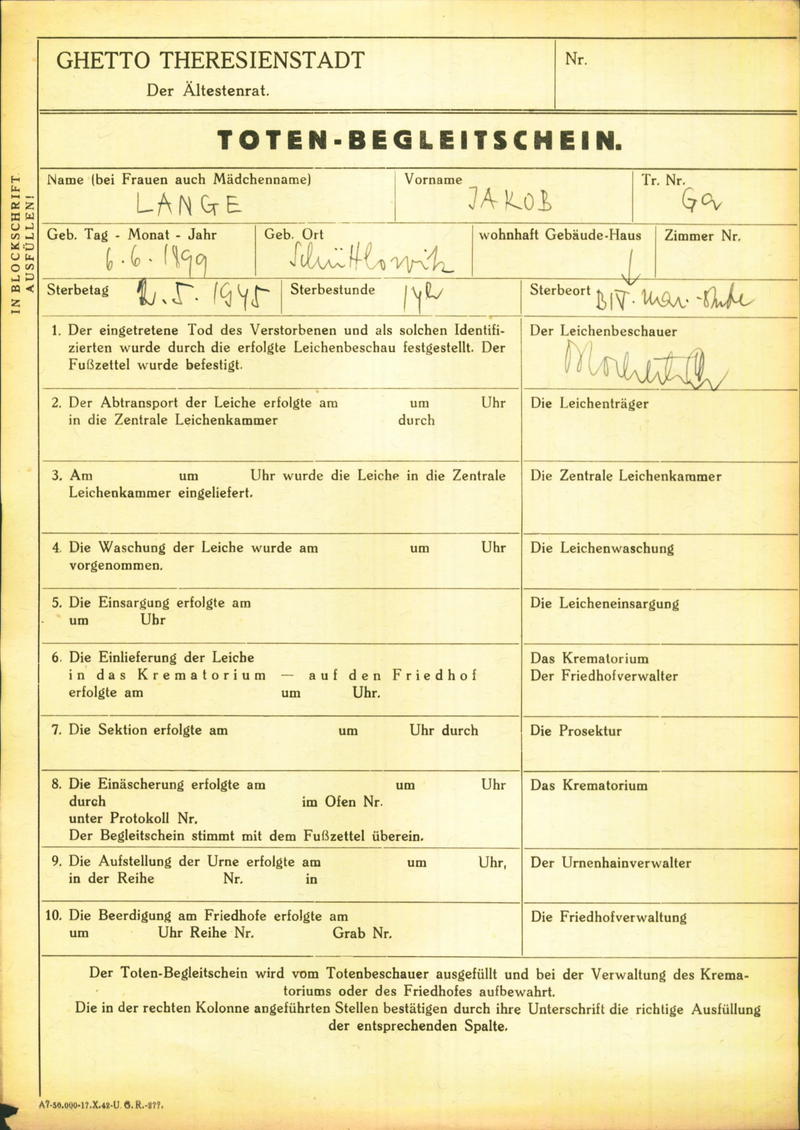 GHETTO THERESIENSTADT
Der Ältestenrat.
Nr.
TOTEN-BEGLEITSCHEIN.
IN BLOCKSCHRIFT
AUSFÜLLEN!
Name (bei Frauen auch Mädchenname)
LANGE
Vorname
JAKOB
Tr. Nr.
Ga
Geb. Tag - Monat - Jahr
6.6.1899
Geb. Ort
wohnhaft Gebäude-Haus
Zimmer Nr.
Sterbetag 2.5.1945
Sterbestunde
Sterbeort
1. Der eingetretene Tod des Verstorbenen und als solchen Identifi-
zierten wurde durch die erfolgte Leichenbeschau festgestellt. Der
Fußzettel wurde befestigt.
Der Leichenbeschauer
2. Der Abtransport der Leiche erfolgte am um Uhr
in die Zentrale Leichenkammer durch
Die Leichenträger
3. Am um Uhr wurde die Leiche in die Zentrale
Leichenkammer eingeliefert.
Die Zentrale Leichenkammer
4. Die Waschung der Leiche wurde am um Uhr
vorgenommen.
Die Leichenwaschung
5. Die Einsargung erfolgte am
um Uhr
Die Leicheneinsargung
6. Die Einlieferung der Leiche
in das Krematorium — auf den Friedhof
erfolgte am um Uhr.
Das Krematorium
Der Friedhofverwalter
7. Die Sektion erfolgte am um Uhr durch
Die Prosektur
8. Die Einäscherung erfolgte am um Uhr
durch im Ofen Nr.
unter Protokoll Nr.
Der Begleitschein stimmt mit dem Fußzettel überein.
Das Krematorium
9. Die Aufstellung der Urne erfolgte am um Uhr,
in der Reihe Nr. in
Der Urnenhainverwalter
10. Die Beerdigung am Friedhofe erfolgte am
um Uhr Reihe Nr. Grab Nr.
Die Friedhofverwaltung
Der Toten-Begleitschein wird vom Totenbeschauer ausgefüllt und bei der Verwaltung des Krema-
toriums oder des Friedhofes aufbewahrt.
Die in der rechten Kolonne angeführten Stellen bestätigen durch ihre Unterschrift die richtige Ausfüllung
der entsprechenden Spalte.